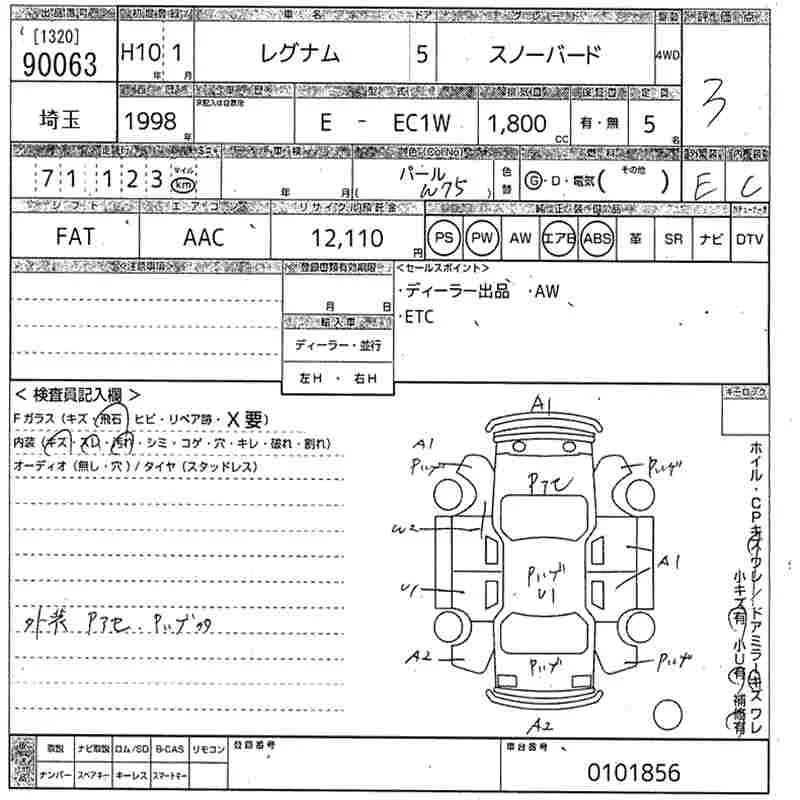 出品番号 初度登録 車名 ドア グレード 駆動 評価点
[1320]
90063 H10年 1月 レグナム 5 スノーバード 4WD 3
埼玉 1998年 未記入は自家用 型式 E - EC1W 排気量 1,800cc 保証書 有・無 定員 5名
走行 71,123 マイル km 車検 年 月 色(ColNo) パール( W75 ) 色替 燃料 G・D・電気( その他 ) 外装 E 内装 C
シフト エアコン リサイクル預託金 純正装備品
FAT AAC 12,110円 PS PW AW エアB ABS 革 SR ナビ DTV
注意事項 登録書類有効期限 <セールスポイント>
月 日 ・ディーラー出品 ・AW
輸入車 ・ETC
ディーラー・並行
左H ・ 右H
< 検査員記入欄 > キーロック
Fガラス(キズ・飛石 ヒビ・リペア跡・X要)
内装(キズ・スレ・汚れ・シミ・コゲ・穴・キレ・破れ・割れ)
オーディオ(無し・穴)/タイヤ(スタッドレス)
A1
A1
Pハゲ Pハゲ
Pアセ
W2
A1
Pハゲ
U1
U1
外装 Pアセ・Pハゲ
A2 Pハゲ
Pハゲ
A2
ホイル・CPキズ ワレ/ドアミラーキズ ワレ
小キズ有 小U有 補修有
取説 ナビ取説 ロム/SD B-CAS リモコン 登録番号 車台番号
ナンバー スペアキー キーレス スマートキー 0101856